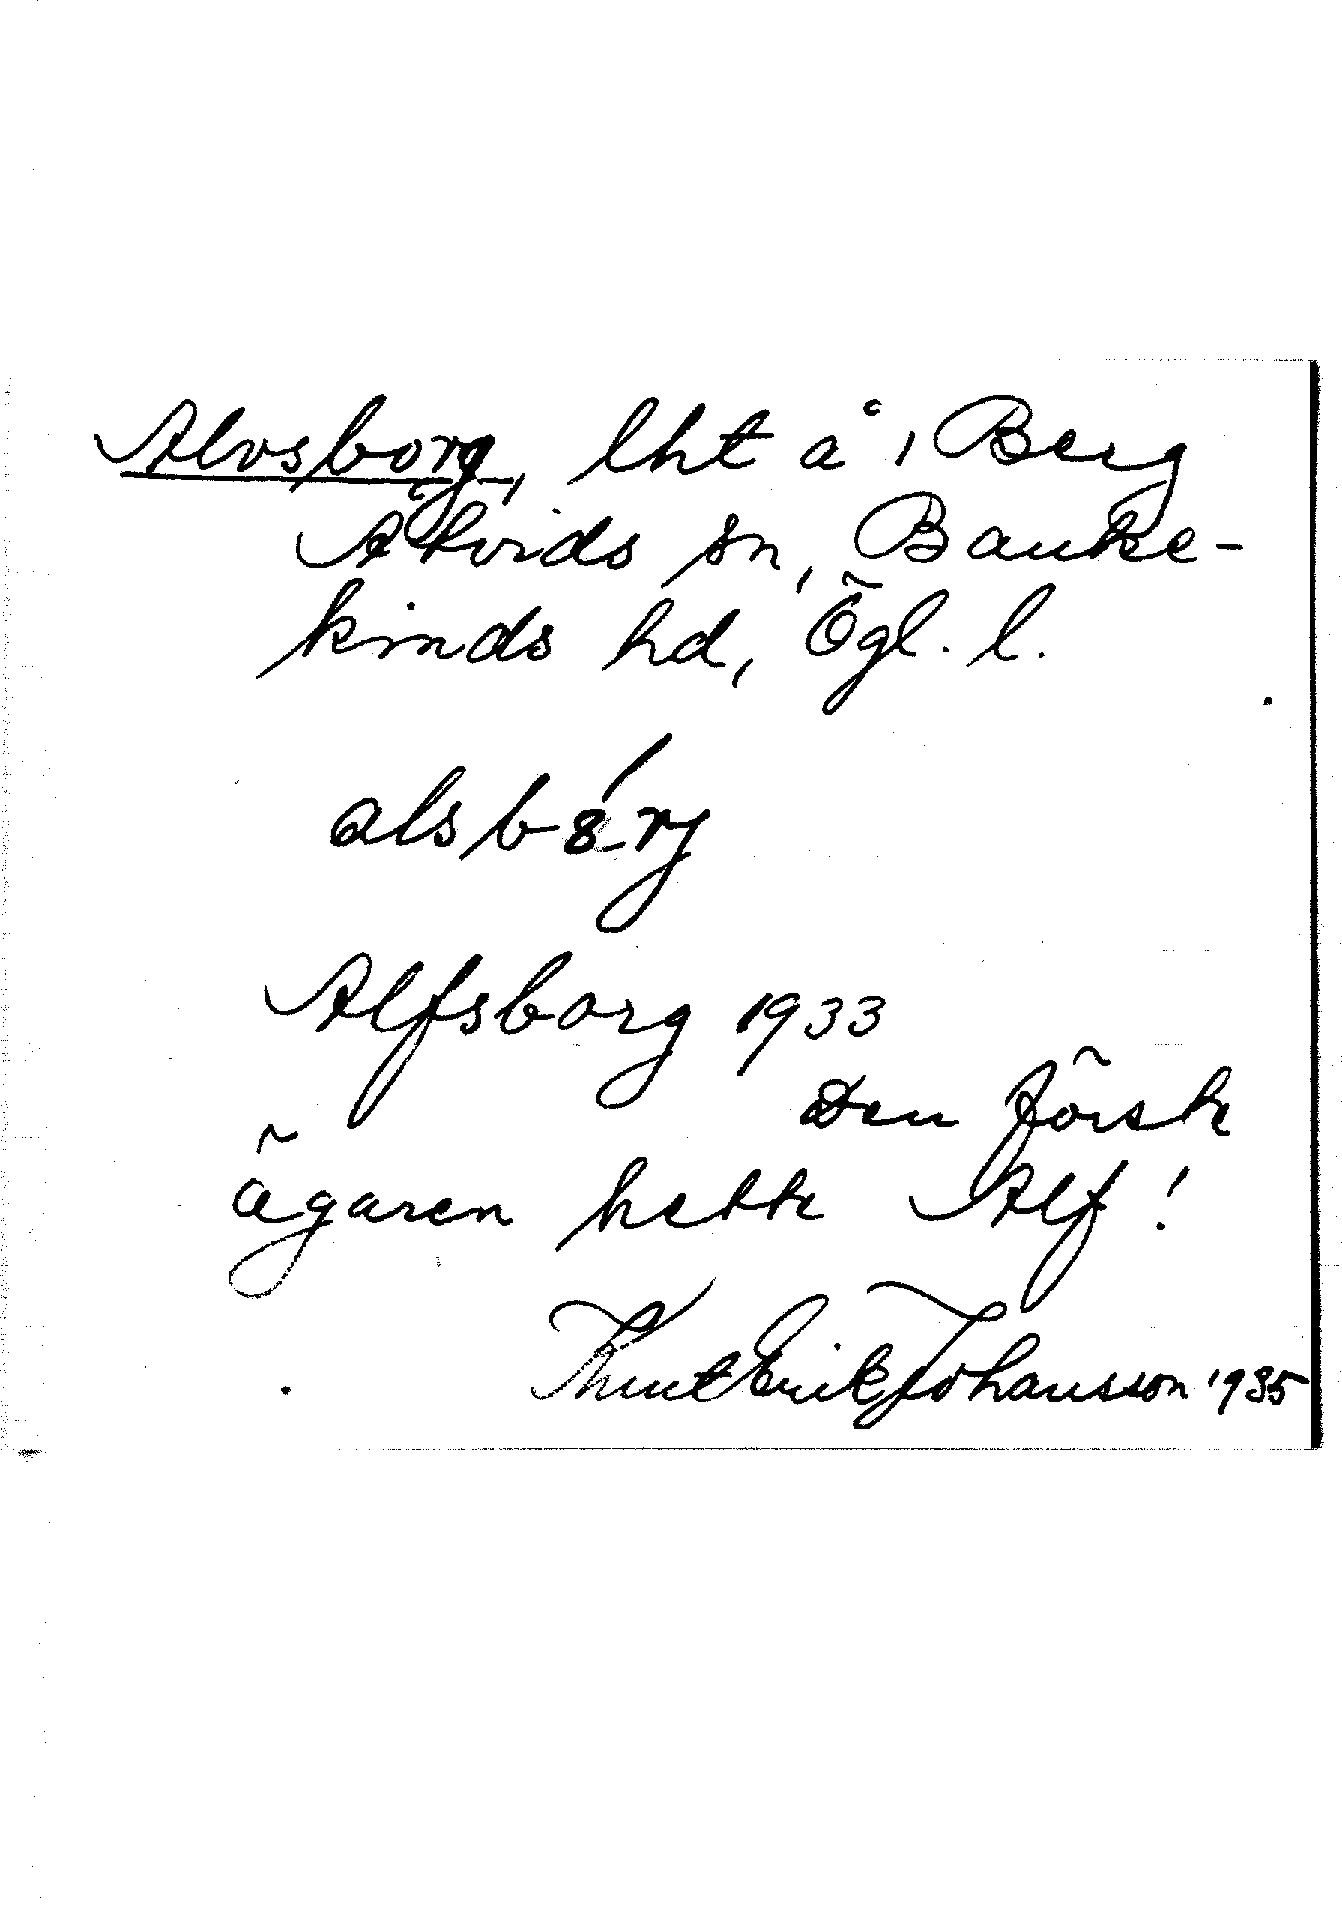 Alvsborg, lht å, Berg
Åtvids sn, Banke-
kinds hd, Ögl. l.
alsbórj
Alfsborg 1933
Den förste
ägaren hette Alf!
Knut Erik Johansson 1935